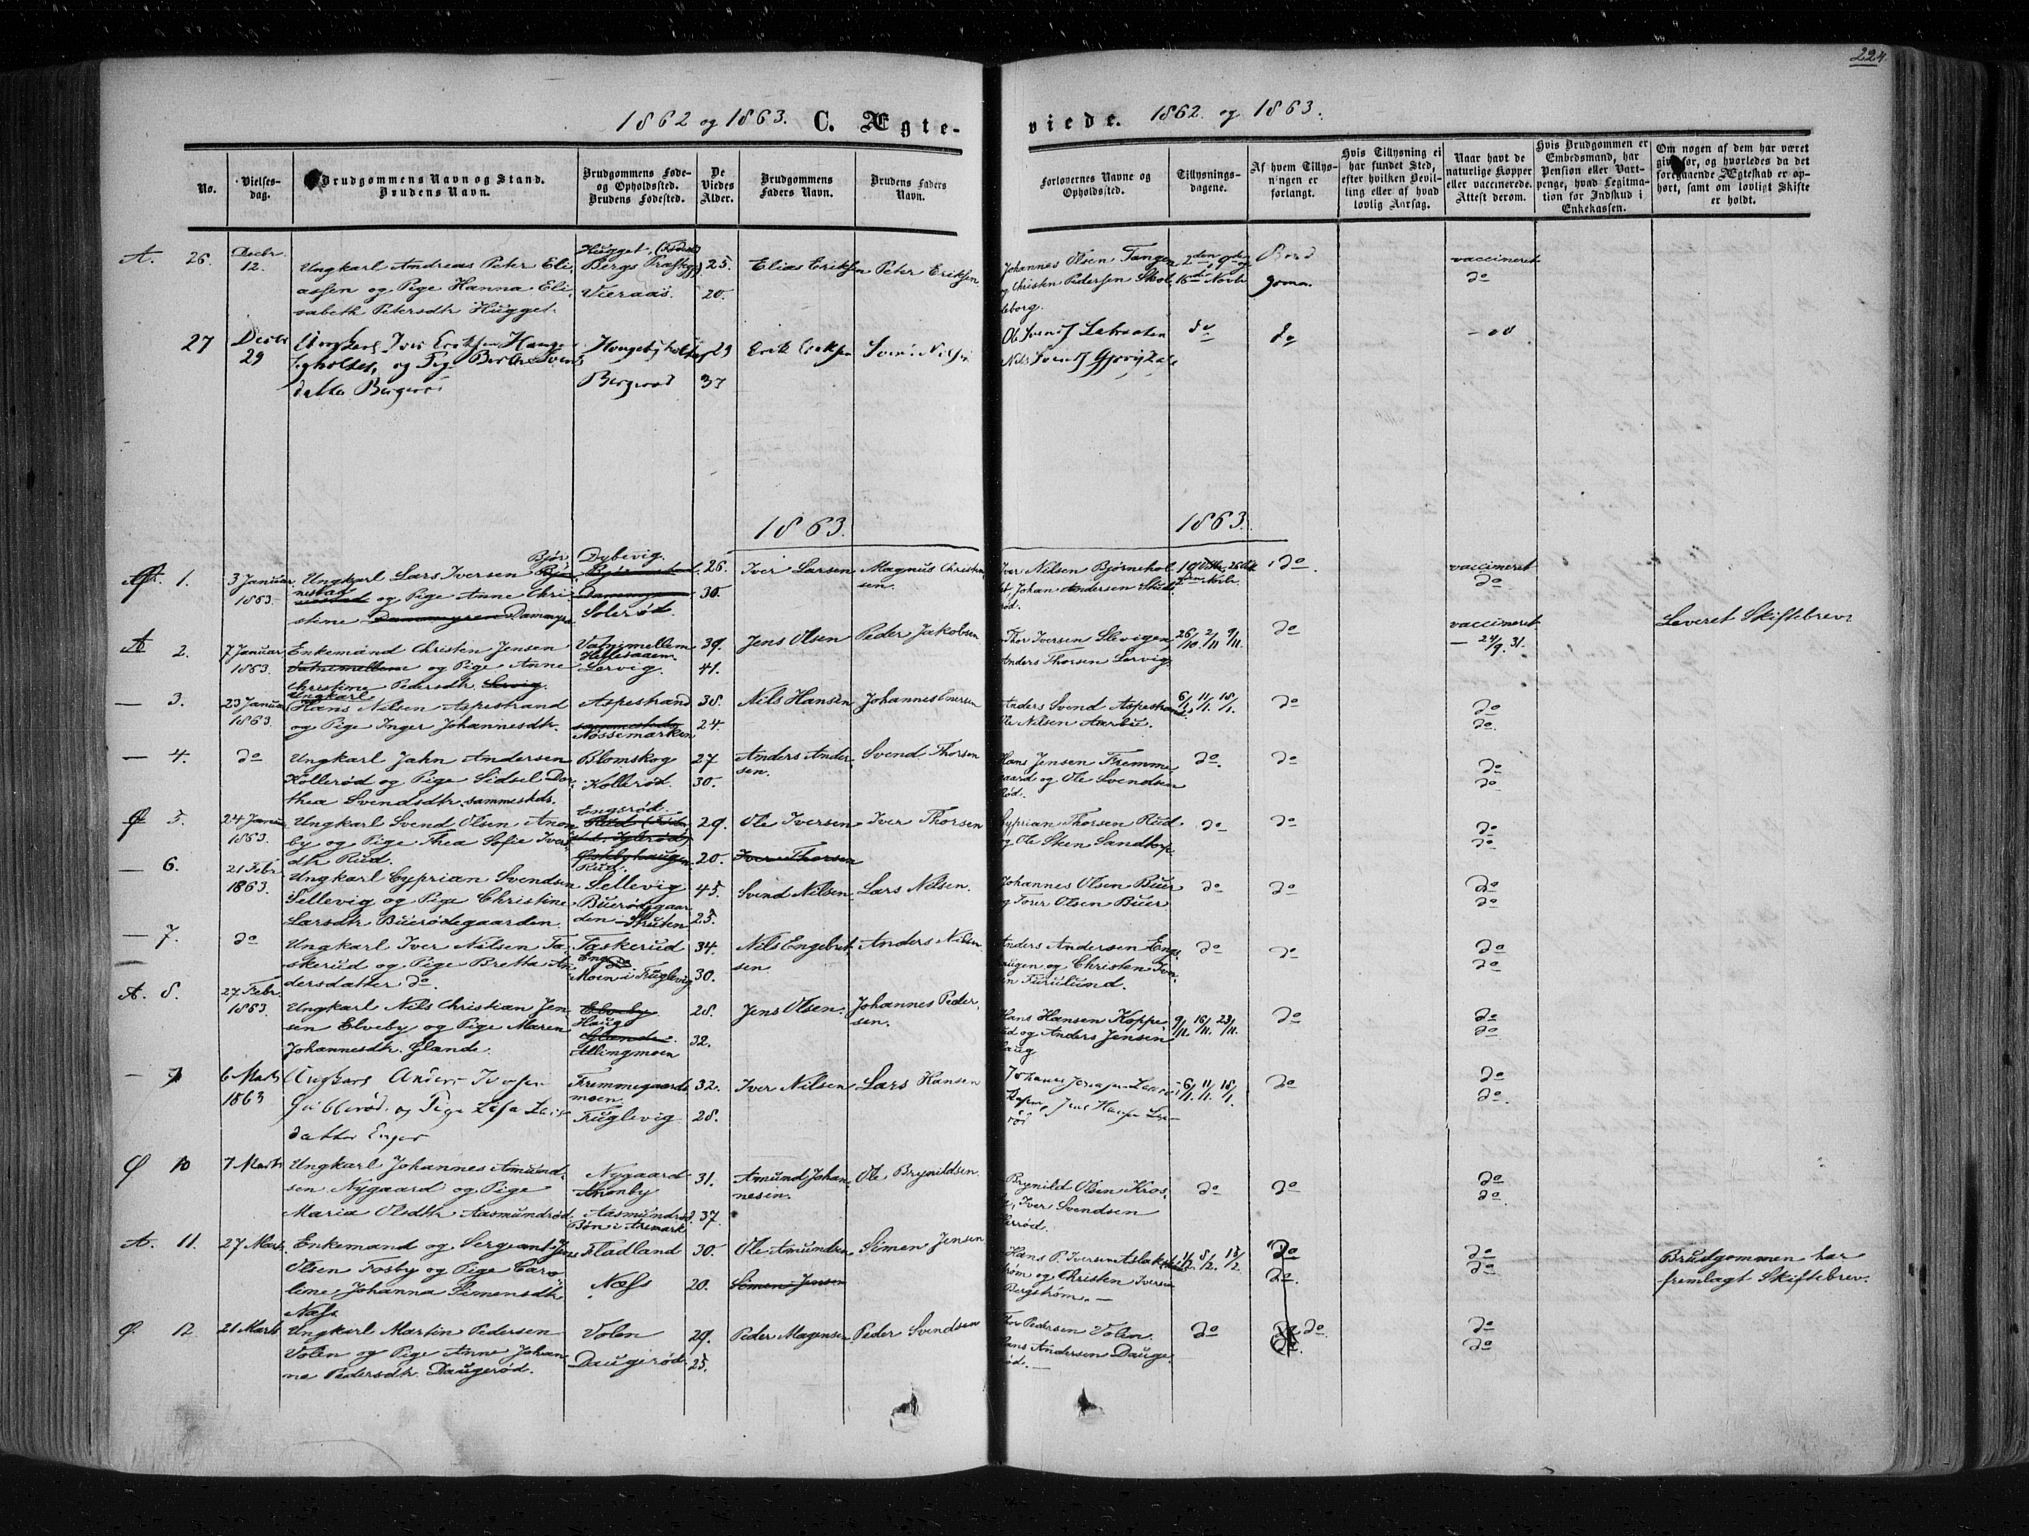 224.
1862 og 1863. C. Ægte-
viede. 1862 og 1863.
No.
Vielses-
dag.
Brudgommens Navn og Stand.
Brudens Navn.
Brudgommens Føde-
og Opholdssted.
Brudens Fødested.
De
Viedes
Alder.
Brudgommens
Faders Navn.
Brudens Faders
Navn.
Forlovernes Navne og
Opholdssted.
Tillysnings-
dagene.
Af hvem Tillys-
ningen er
forlangt.
Hvis Tillysning ei
har fundet Sted,
efter hvilken Bevil-
ling eller af hvad
lovlig Aarsag.
Naar havt de
naturlige Kopper
eller vaccinerede.
Attest derom.
Hvis Brudgommen er
Embedsmand, har
Pension eller Vart-
penge, hvad Legitima-
tion for Indskud i
Enkekassen.
Om nogen af dem har været
gift før, og hvorledes da det
foregaaende Ægteskab er op-
hørt, samt om lovligt Skifte
er holdt.
A. 26. Decbr 12.
Ungkarl Andreas Peter Eli-
assen og Pige Hanna Eli-
sabeth Petersdtr Hugget.
Hugget
Bergs Præstgj
Vieraas.
25.
20.
Elias Eriksen
Peter Eriksen
Johannes Olsen Tangen
og Christen Pedersen Skol
leborg.
2den 9de og
16de Novbr
Brud
gomm.
vaccineret
do
27 Decbr 29
Ungkarl Iver Eriksen Hauge-
byholtet, og Pig Berthe Svends
datter Bergerød
Haugebyholtet
Bergerød
29
37
Erik Eriksen
Svend Nilsen
do
do
do
1863.
1863.
1. 3 Januar 1863.
Ungkarl Lars Iversen Bjør-
nestad og Pige Anne Chri
stine Dammyren Dammyra
Dybevig.
Solerød.
26.
30.
Iver Larsen
Magnus Christen-
sen.
Iver Nilsen Bjørnehol
t, Johan Andersen
rød.
do.
vaccineret
do
A 2. 7 Januar 1863.
Enkemand Christen Jensen
Vatnemellem og Pige Anne
Christine Pedersdtr. Lervig.
Vatnemellem
Lervig.
39.
41.
Jens Olsen
Peder Jakobsen
Thor Iversen Slevigen
Anders Thorsen Lervig.
26/10. 2/11 9/11
do
vaccineret
— 24/9. 31.
Leveret Skiftebrev
— 3. 23 Januar 1863.
Ungkarl
Hans Nilsen Aspestrand
og Pige Inger Johannesdtr.
Aspestrand
sammesteds
Nössemarken
38.
24.
Nils Hansen
Johannes Enersen
Anders Svend Aspestrand
Ole Nilsen Aarbu.
6/1. 11/1. 18/1.
do
do
do.
— 4. do
Ungkarl Jahn Andersen
Kollerød og Pige Sidsel Dor-
thea Svendsdtr. sammesteds.
Blomskog
Kollerød.
27
30.
Anders Ander-
sen.
Svend Thorsen
Hans Jensen Fremme
gaard og Ole Svendsen
rød.
do.
do
do
do
Ø 5. 24 Januar 1863.
Ungkarl Svend Olsen Anon
by og Pige Thea Sofie Ivers
dtr Rud.
Engerød.
Rud.
29.
20.
Ole Iversen
Iver Thorsen
Iver Thorsen
Cyprian Thorsen Rud.
og Ole Sten Sandtorp
do
do
do
do.
— 6. 21 Febr 1863.
Ungkarl Cyprian Svendsen
Sellevig og Pige Christine
Larsdtr Buerødegaarden.
Sellevig
Buerødegaar
den
45.
25.
Svend Nilsen
Lars Nilsen.
Johannes Olsen Buer
og Torer Olsen Buer
do
do
do
do
— 7. do
Ungkarl Iver Nilsen Ta-
skerud og Pige Bretta An
dersdatter do.
Taskerud
Moen i Truglevig
34.
30.
Nils Engebret-
sen.
Anders Nilsen
Anders Andersen Eng
augen og Christen Iver
sen Furulund.
do
do
do
do
A. 8. 27 Febr. 1863.
Ungkarl Nils Christian Jen-
sen Elveby og Pige Maren
Johannesdtr. Glande.
Elveby.
Haug
Glande.
Ullingmoen
28.
32.
Jens Olsen.
Johannes Peder-
sen.
Hans Hansen Koppe
rud og Anders Jensen
Haug
9/11. 16/11. 23/11.
do
do
do
— 9 6 Marts 1863
Ungkarl Anders Iversen
og Pige
datter
Fremmegaards
moen.
Truglevig
32.
28.
Iver Nilsen
Lars Hansen
6/1. 11/1. 18/1.
do
do
do.
Ø 10 7 Marts
Ungkarl Johannes Amund-
sen Nygaard og Pige
Maria Olsdtr Aasmundrød
Nygaard
Anonby
Aasmundrød.
Bøn i Aremark
31.
37.
Amund Johan-
nesen.
Ole Brynildsen.
Brynild Olsen Kros-
by, Iver Svendsen
rød.
do
do
do
do.
A. 11. 27 Marts.
Enkemand og Sergeant Jens
Olsen Tosby og Pige Caro-
line Johanna Simensdtr
Næss
Fladland
Næss
30.
20.
Ole Amundsen
Simen Jensen
Simen Jensen
Hans P. Iversen Aslakstrøm
strøm og Christen Iversen
Bergstrøm. —
1/2. 8/2. 13/2.
do
do.
do
do
Brudgommen har
fremlagt Skiftebrev.
Ø. 12. 21 Marts
Ungkarl Martin Pedersen
Volen og Pige Anne Johan-
na Pedersdtr. Daugerød.
Volen
Daugerød
29.
25.
Peder Magensen
Peder Svendsen
Tor Pedersen Volen.
Hans Andersen Dauge-
rød. —
do
do.
do
do